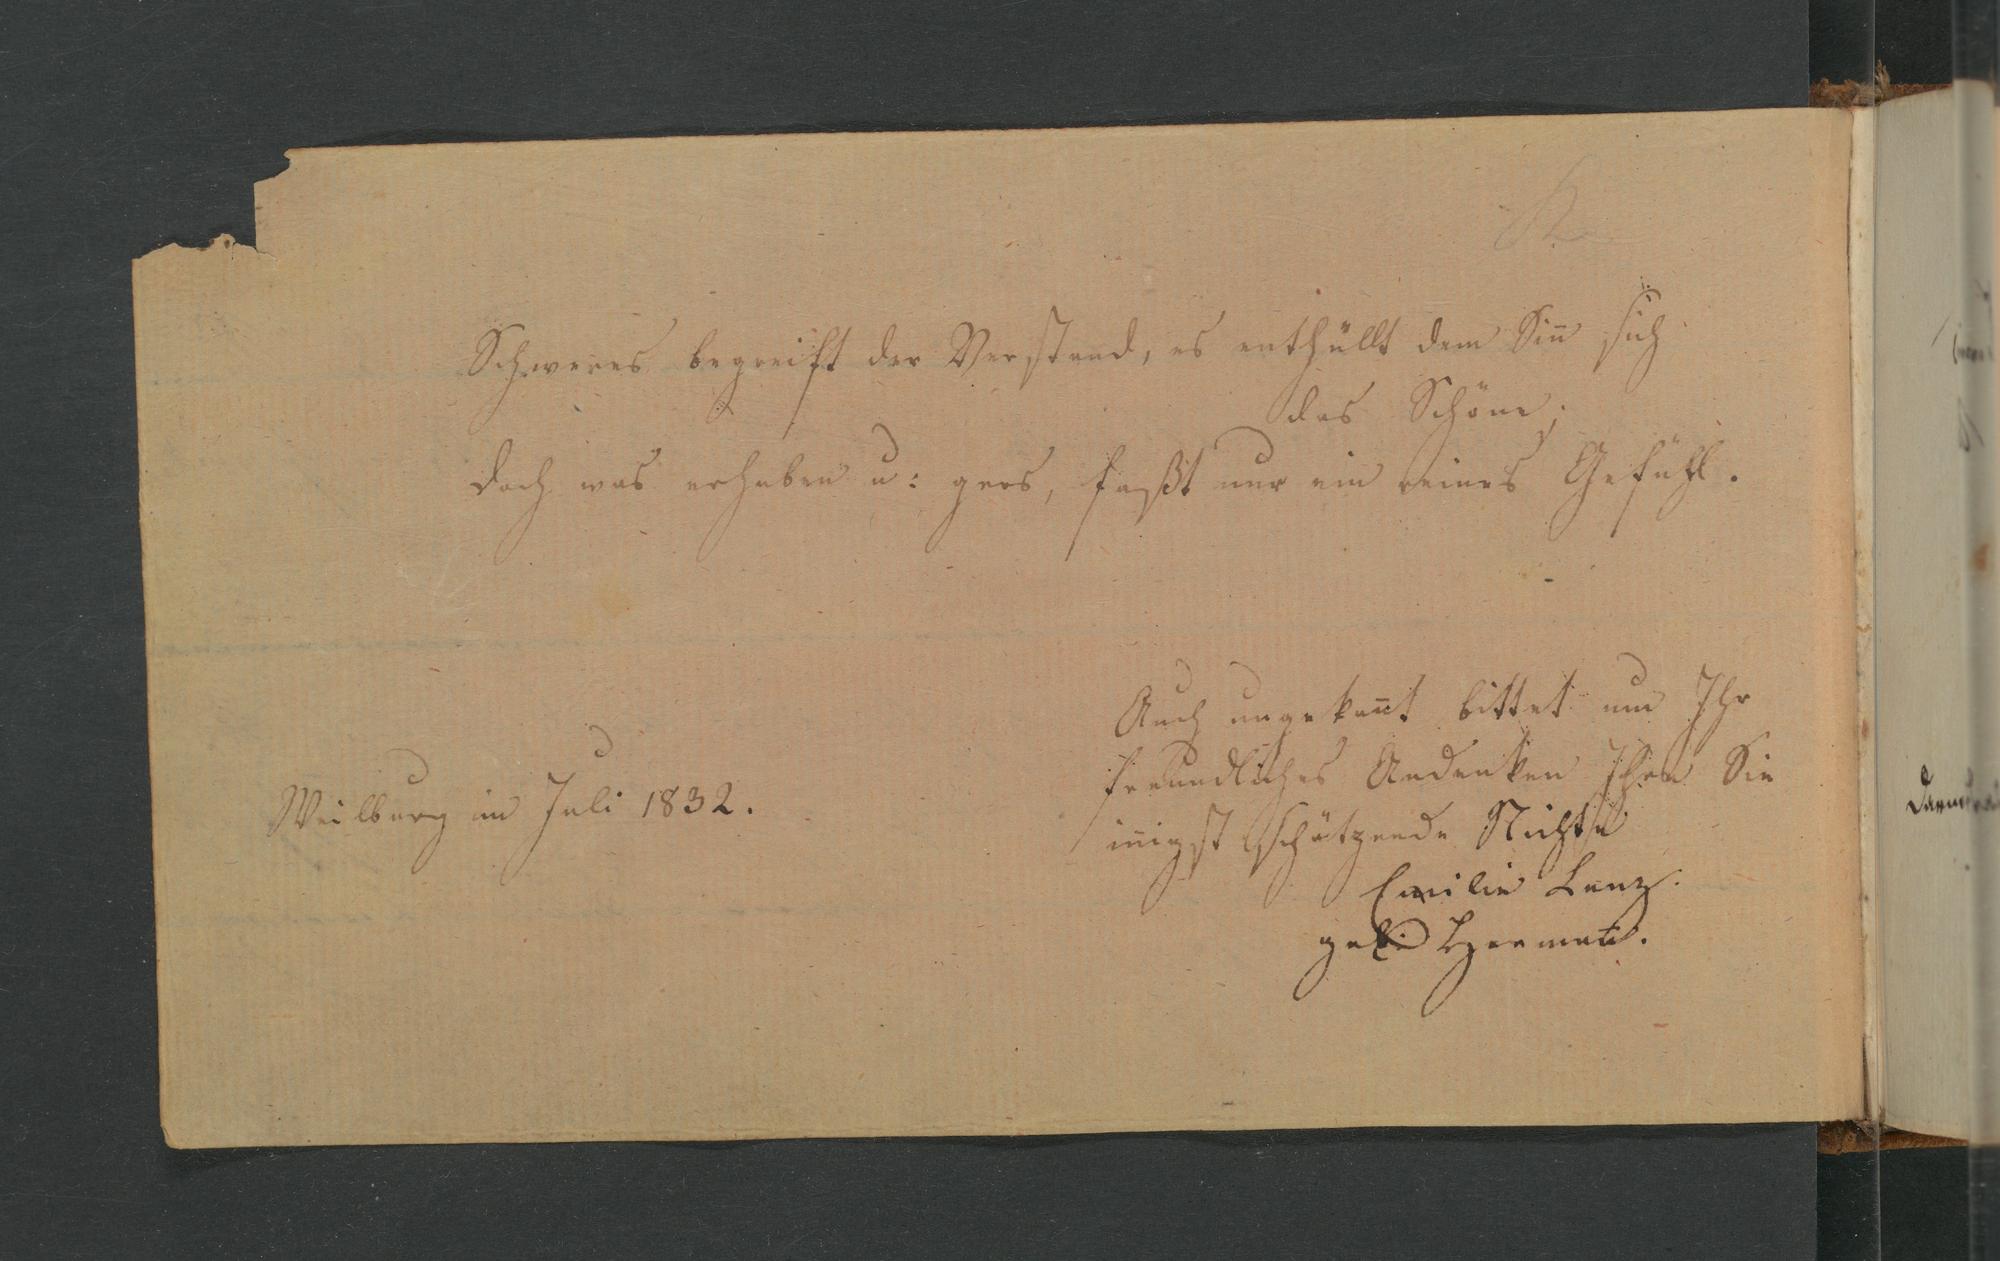 Schweres begreift der Verstand, es enthüllt dem Sin̅ sich
das Schöne;
doch was erhaben u: gros, faßt nur ein reines Gefühl.
Auch ungekan̅t bittet um Ihr
freundliches Andenken Ihre Sie
in̅igst schätzende Nichte
Weilburg im Juli 1832.
Emilie Lenz.
geb. Herman̅.